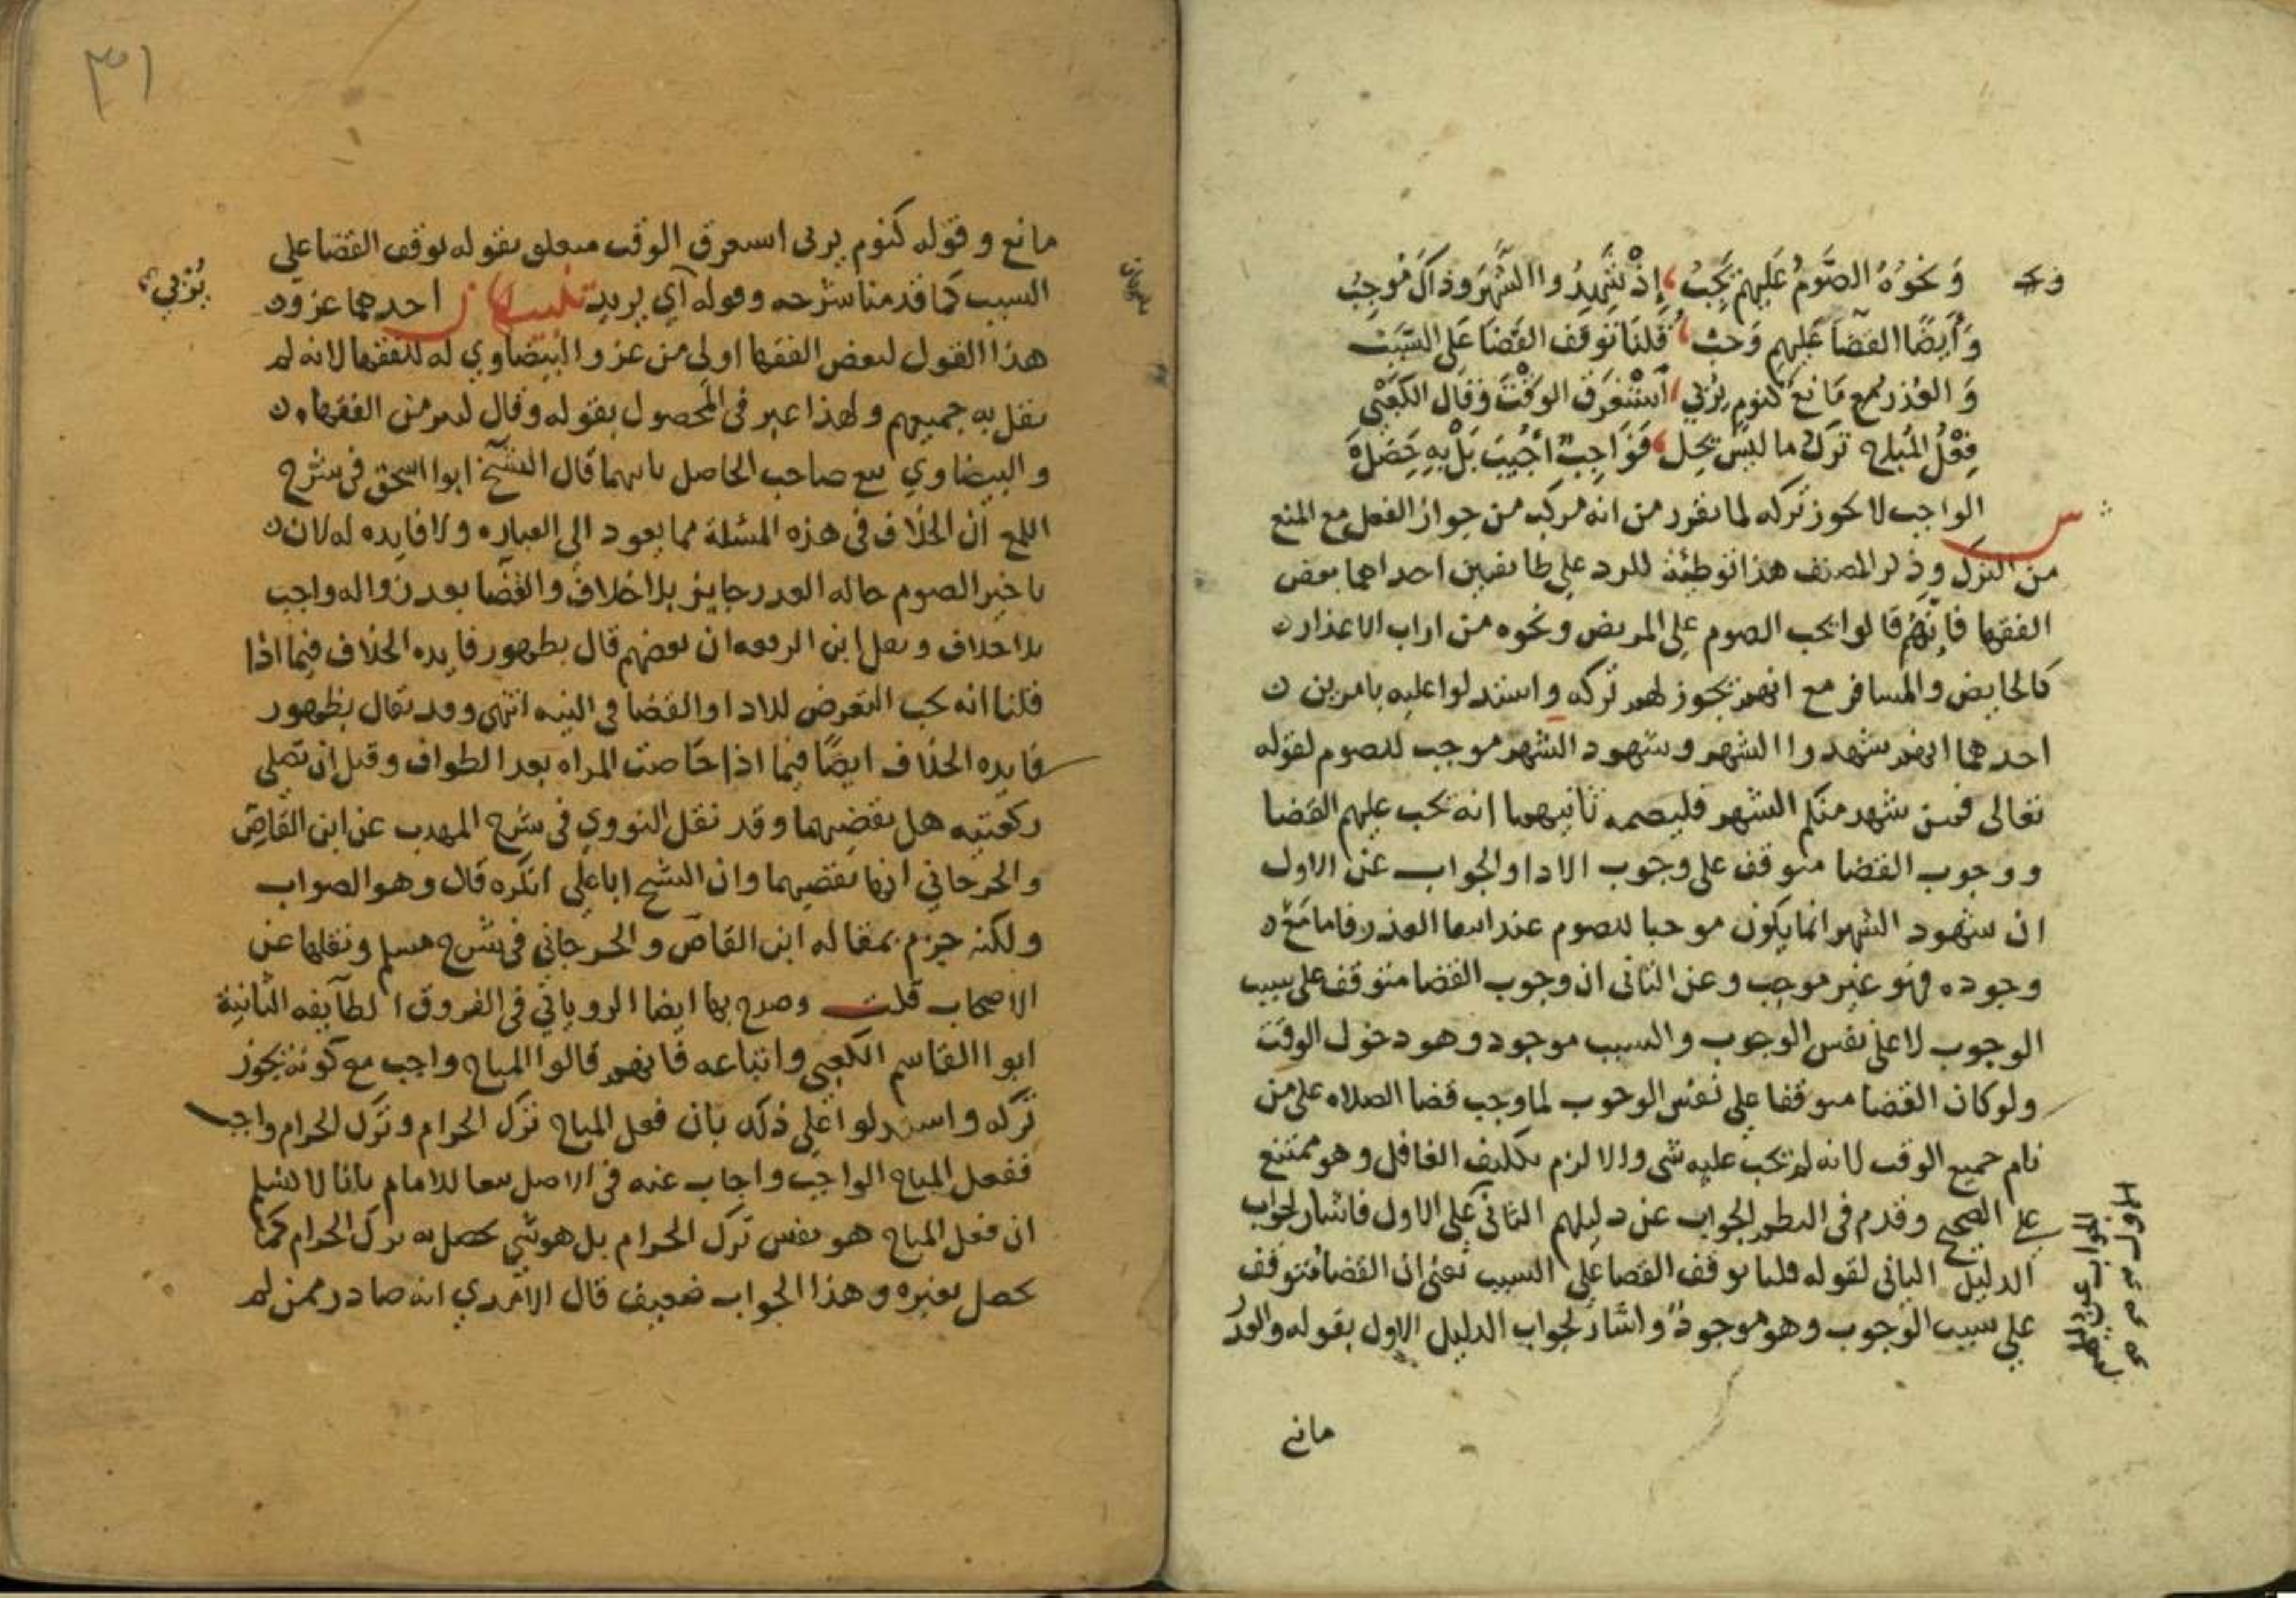 وَنحوُهُ الصَّومُ عَليهم يَجِبُ إِذْ شَهِدُوا الشَّهرَ وذاكَ مُوجِبُ
وَأَيضًا القضَا عَليهِم وَجَبْ قُلنَا تَوقف القَضَا عَلَى السَّبَبْ
وَالعُذرُ مَانع كنَوم يُرْبي اسْتَغرَقَ الوَقْتَ وَقال الكَعْبي
فِعْلُ المُباح تركُ ما ليسَ يحل فَوَاجِبٌ أجيبَ بَلْ بِهِ حَصَلْ
س الواجب لا يجوز تركه لما تقرر من انه مركب من جواز الفعل مع المنع
من الترك وذكر المصنف هذا توطئة للرد على طائفتين احداهما بعض
الفقها فانهم قالوا يجب الصوم على المريض ونحوه من ارباب الاعذار
كالحايض والمسافر مع انهم يجوز لهم تركه واستدلوا عليه بامرين
احدهما انهم شهدوا الشهر وشهود الشهر موجب للصوم لقوله
تعالى فمن شهد منكم الشهر فليصمه ثانيهما انه يجب عليهم القضا
ووجوب القضا متوقف على وجوب الادا والجواب عن الاول
ان شهود الشهر انما يكون موجبا للصوم عند انتفا العذر فاما مع
وجوده فهو غير موجب وعن الثاني ان وجوب القضا متوقف على سبب
الوجوب لا على نفس الوجوب والسبب موجود وهو دخول الوقت
ولو كان القضا متوقفا على نفس الوجوب لما وجب قضا الصلاه على من
نام جميع الوقت لانه لم يجب عليه شي والا لزم تكليف الغافل وهو ممتنع
على الصحيح وقدم في النظم الجواب عن دليلهم الثاني على الاول فاشار لجواب
الدليل الثاني بقوله قلنا توقف القضا على السبب يعني ان القضا متوقف
على سبب الوجوب وهو موجود واشار لجواب الدليل الاول بقوله والعذر
مانع
٣١
مانع وقوله كنوم يربي استغرق الوقت متعلق بقوله توقف القضا على
السبب كما قدمنا شرحه وقوله اي يريد تنبيهان احدهما عزو
يُرْبي
هذا القول لبعض الفقها اولى من عزو البيضاوي له للفقها لانه لم
يقل به جميعهم ولهذا عبر في المحصول بقوله وقال كثير من الفقهاء
والبيضاوي تبع صاحب الحاصل ثانيهما قال الشيخ ابو اسحق في شرح
اللمع ان الخلاف في هذه المسئلة مما يعود الى العباره ولا فايده له لان
تاخير الصوم حاله العذر جايز بلا خلاف والقضا بعد زواله واجب
بلا خلاف ونقل ابن الرفعه ان بعضهم قال بظهور فايده الخلاف فيما اذا
قلنا انه يجب التعرض للادا والقضا في النيه انتهى وقد يقال بظهور
فايده الخلاف ايضًا فيما اذا حاضت المراه بعد الطواف وقبل ان تصلي
ركعتيه هل تقضيهما وقد نقل النووي في شرح المهذب عن ابن القاص
والجرجاني انها تقضيهما وان الشيخ ابا علي انكره قال وهو الصواب
ولكنه جزم بمقاله ابن القاص والجرجاني في شرح مسلم ونقلها عن
الاصحاب قلت وصرح بها ايضا الروياني في الفروق الطايفه الثانية
ابو القاسم الكعبي واتباعه فانهم قالوا المباح واجب مع كونه يجوز
تركه واستدلوا على ذلك بان فعل المباح ترك الحرام وترك الحرام واجب
ففعل المباح الواجب واجاب عنه في الاصل تبعا للامام بانا لا نسلم
ان فعل المباح هو نفس ترك الحرام بل هو شي يحصل به ترك الحرام كما
يحصل بغيره وهذا الجواب ضعيف قال الآمدي انه صادر ممن لم